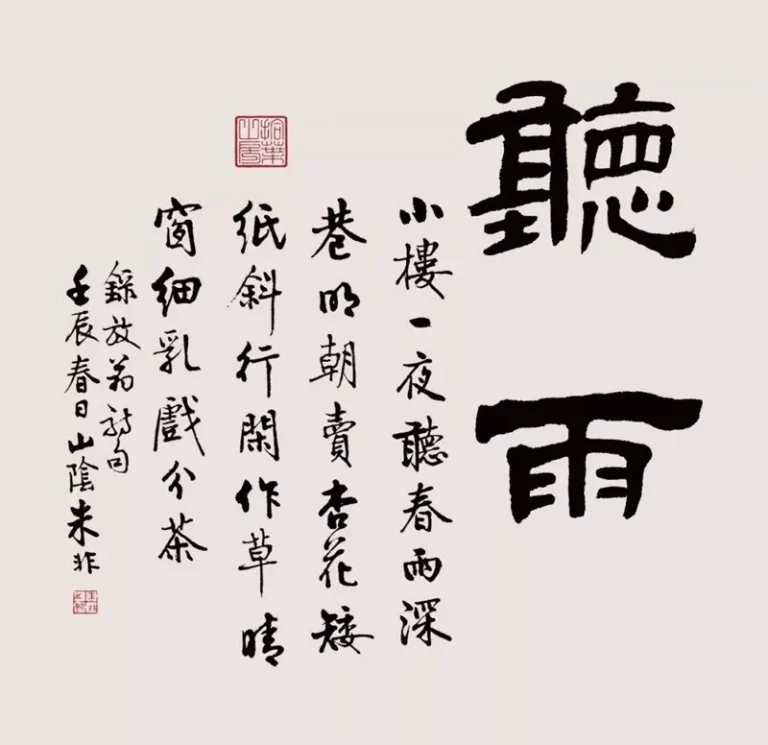 聽雨
小樓一夜聽春雨深
巷明朝賣杏花矮
紙斜行閑作草晴
窗細乳戲分茶
錄放翁詩句
壬辰春日山陰朱非
拾葉山房